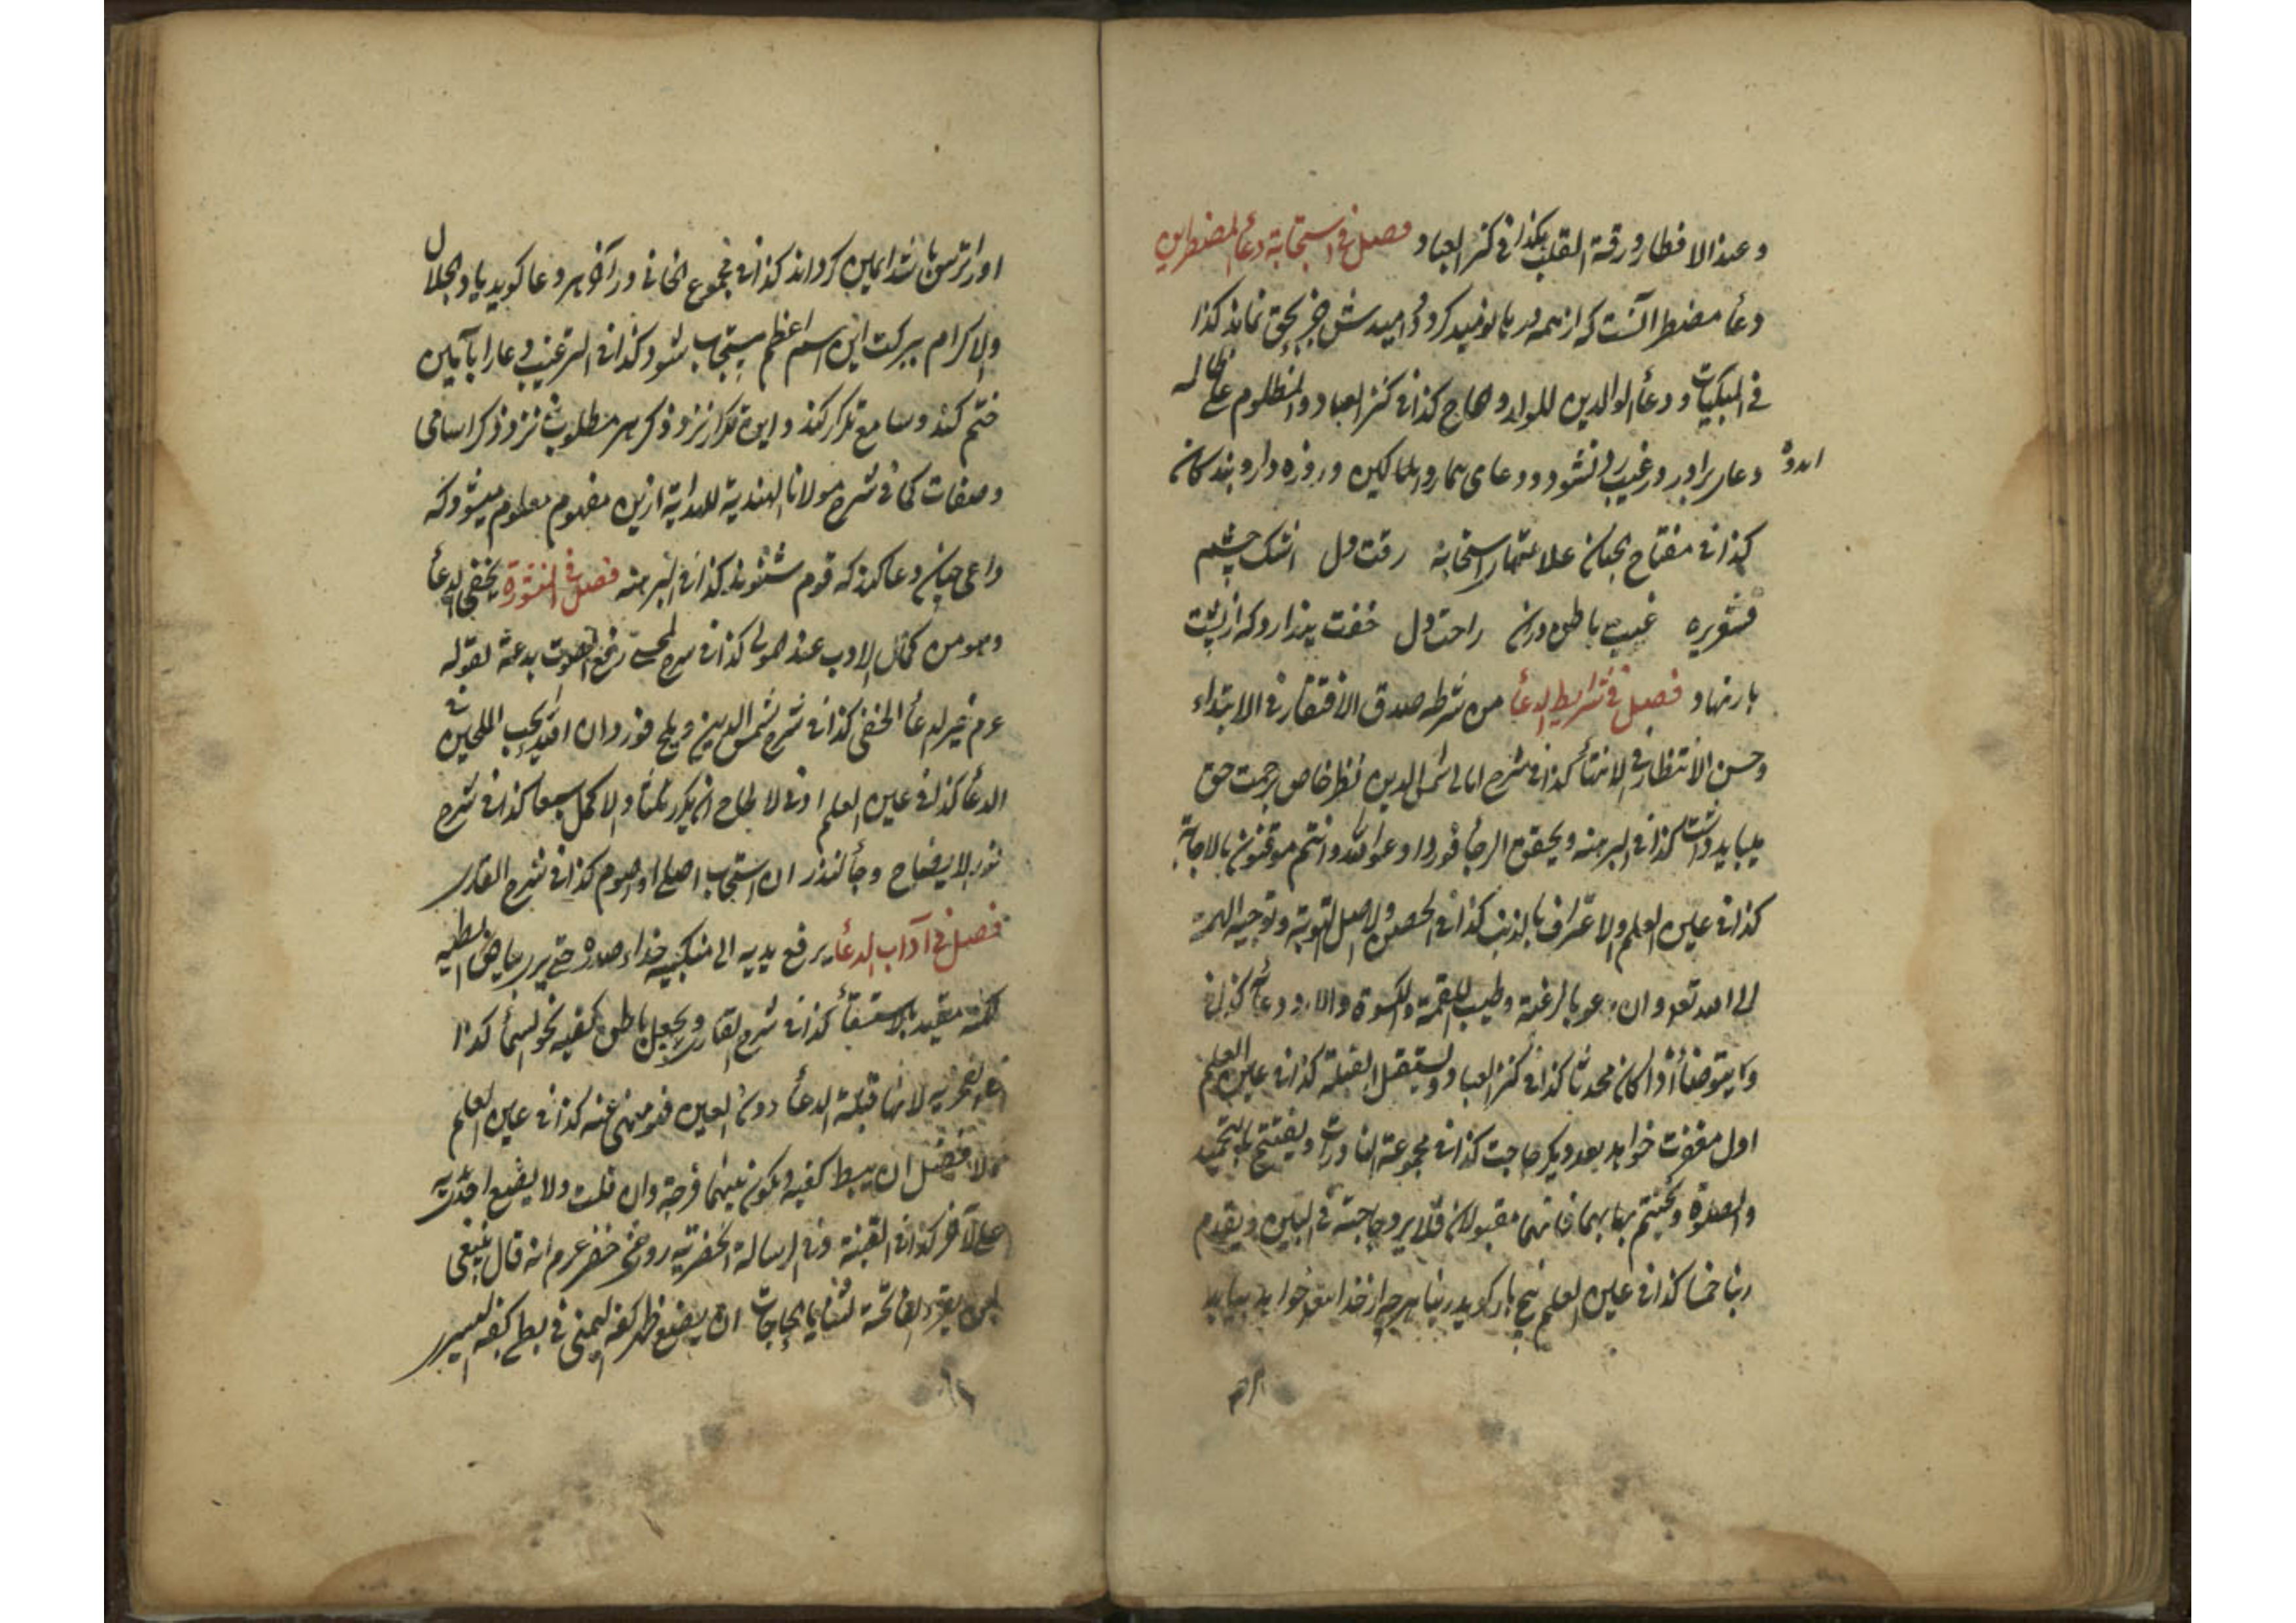 وعند الافطار ورقة القلب هكذا فی كنز العباد فصل فی استجابة دعأ المضطرین
دعأ مضطر آنست كه از همه درها نومید كردد و امیدش جز بحق نماند كذا
فی البكیات ودعأ الوالدین للولد وهاج كذا فی كنز العباد والمظلوم علی ظالمه
دعای برادر در غیب رد نشود ودعای بیمار و المسالكین وروزه دار و بندكان
كذا فی مفتاح الجنان علامتهای استجابة رقت دل اشك چشم
قشعریره غیب باطن درن راحت دل خفت پندارد كه از پشت
بار نهاد فصل فی شرایط الدعأ من شرطه صدق الافتقار فی الابتداء
وحسن الانتظار فی الانتهأ كذا فی شرح امالی شمس الدین نظر خاص برحمت حق
میباید داشت كذا فی البرهنه ویحقق الرجأ فورد ادعوا الله وانتم موقنون بالاجابة
كذا فی عین العلم والاعتراف بالذنب كذا فی الحصین والاصل التوبة وتوجیه الهمة
الی الله تعالی وان یدعو بالرغبة وطیب اللقمة والكسوة
وكا یتوضأ أذا كان محدثا كذا فی كنز العباد ویستقبل القبلة كذا فی عین العلم
اول مغفرت خواهد بعد دیكر حاجت كذا فی مجموعة النادرات ویفتتح بالتحمید
والصلوة ویختتم بهما فانهما مقبولان فلا یرد حاجته فی البین ویقدم
ربنا خمسا كذا فی عین العلم پنج بار كوید ربنا هرچه از خدا تعالی خواهد بیابد
او را ترس باشد امین كرداند كذا فی مجموع الخانی و در آخر هر دعا كوید یا ذالجلال
والاكرام ببركت این اسم اعظم مستجاب شود كذا فی الترغیب دعا را بآمین
ختم كند وسامع تكرار كند و این تكرار نزد ذكر هر مطلوب نزد ذكر اسامی
وصفات كما فی شرح مولانا الهندیة للهدایة ازین مفهوم معلوم میشود كه
داعی چنان دعا كند كه قوم شنوند كذا فی البرهنه فصل فی المنثورة یخفی الدعأ
وهو من كمال الادب عند كذا فی شرح رفع الصوت بدعة لقوله
عرم خیر الدعأ الخفی كذا فی شرح شمس الدین ویلح فورد ان الله یحب الملحین فی
الدعأ كذا فی عین العلم ادنی الالحاح ان یكرر ثلثأ والاكمل سبعا كذا فی شرح
نور الایضاح وجأ النذر ان استجاب اصلی او اصوم كذا فی شرح القدری
فصل فی آداب الدعأ یرفع یدیه الی منكبیه حذاء صدره حتی یری بیاض ابطیه
لكنه مقید بالاستسقأ كذا فی شرح القاری ویجعل باطن كفیه نحو السمأ كذا
لانها قبلة الدعأ دون العین فهو منهی عنه كذا فی عین العلم
والافضل ان یبسط كفیه ویكون بینهما فرجة وان قلت ولا یضع احد یدیه
علی الآخر كذا فی القنیة وفی الرسالة الخضریة روی عن خضر عرم انه قال ینبغی
لمن یقرء الفاتحة لقضایا الحاجات ان یضع ظهر كفه الیمنی فی بطن كفه الیسری